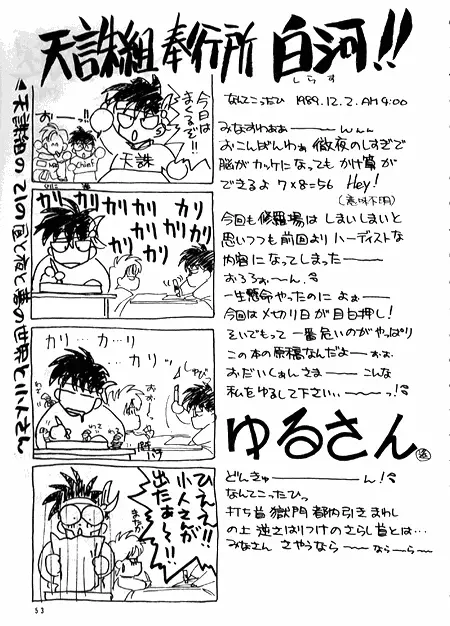 天誅組 奉行所 白河!!
しらす
なんてこったひ 1989.12.2.AM9:00
みなすわぁぁーーんんん
おこんばんわぁ 徹夜のしすぎで
脳がカッケになっても かけ算が
できるよ 7×8=56 Hey!
(意味不明)
今回も修羅場は しまいしまいと
思いつつも前回より ハーディストな
内容になってしまったーー
おろろぉーん
一生懸命やったのに よぉーー
今回は〆切り日が目白押し!
そいでもって 一番危いのがやっぱり
この本の原稿なんだよーーぉぉ
おだいくぁんさまーー こんな
私をゆるして下さい、ーーっ!
ゆるさん
どんきゅーーーーん!
なんてこったひっ
打ち首 獄門 都内引きまわし
の上 逆さはりつけのさらし首とは…
みなさん さやうならーー ならーらー
▲天誅組の21の昼と夜と夢の世界と小人さん
今日は
まくるぞ!!
おーーっ!!
天誅
Chief
カリ カリ カリ カリ
カリ カリ カリ カリ
カリ…カリ…カリ
カリ…カリッ
しゃび
おぉー
わて
わて
ひえぇ!!
小人さんが
出たぁ〜!!
まさか
53